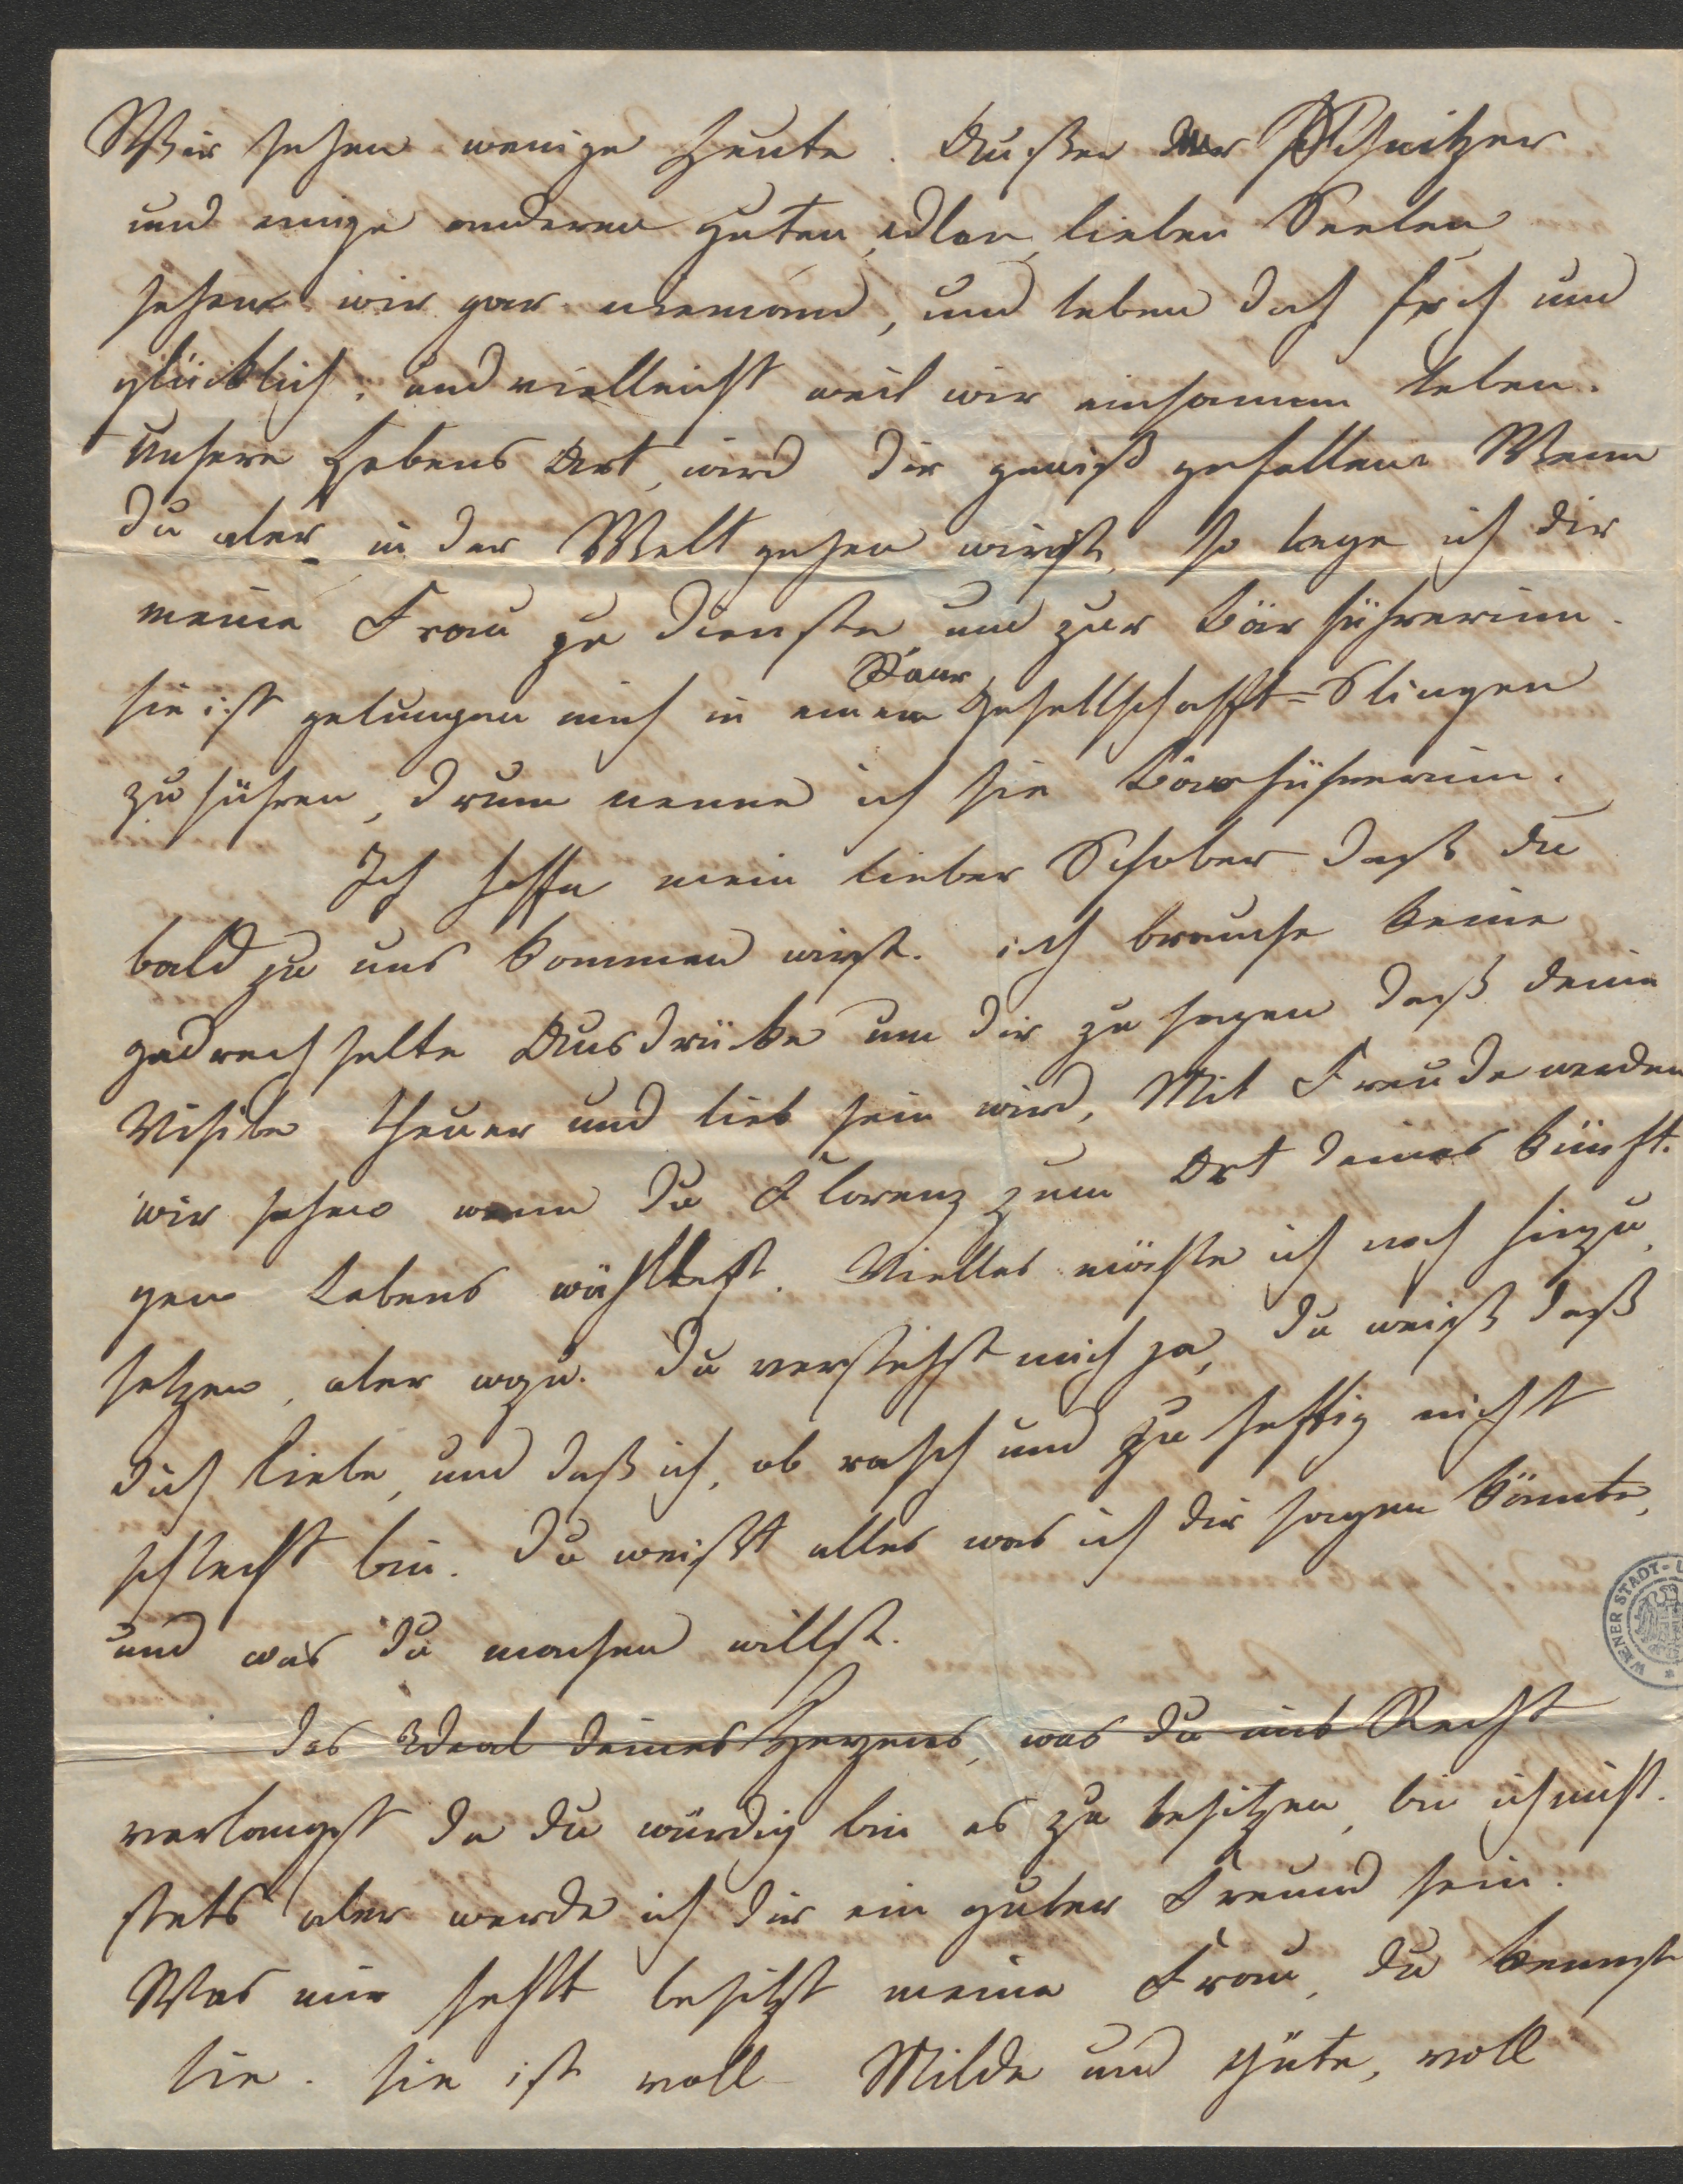 Wir sehen wenige Leute. Außer der Schnitzer
und einige anderen guten, edlen, lieben Seelen
sehen wir gar niemand, und leben doch froh und
glücklich; und vielleicht weil wir einsamm leben.
Unsere Lebens Art, wird dir gewiß gefallen. Wenn
du aber in der Welt gehen wirst, so lege ich dir
meine Frau zu Dienste und zur Bärführerinn.
sie ist gelungen mich in einem Paar Gesellschafft=Slingen
zu führen, drum nenne ich sie Bärführerinn.
Ich hoffe mein lieber Schober daß du
bald zu uns kommen wirst. ich brauche keine
gedrechselte Ausdrücke um dir zu sagen daß deine
Visite theuer und lieb sein wird, Mit Freude werden
wir sehen wenn du Florenz zum Ort deines künft.
gen Lebens wähltest. Vielles möchte ich noch hinzu
setzen, aber wozu. du verstehst mich ja, du weißt daß
dich liebe, und daß ich, ob rasch und zu heftig nicht
schlecht bin. du weißt alles was ich dir sagen könnte,
und was du machen willst.
das Ideal deines Herzens, was du mit Recht
verlangst da du würdig bin es zu besitzen, bin ich nicht.
stets aber werde ich dir ein guter Freund sein.
Was mir fehlt besitzt meine Frau, du kennst
sie. sie ist voll Milde und Güte, voll
WIENER STADT-